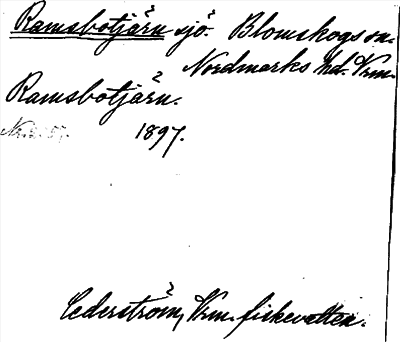 Ramsbotjärn sjö. Blomskogs sn.
Nordmarks hd. Vrm.
Ramsbotjärn.
1897.
Cederström, Vrm. fiskevatten.